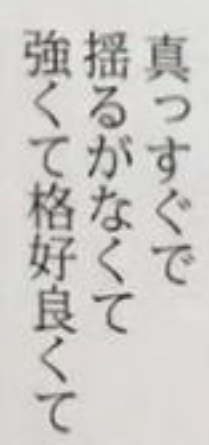 真っすぐで
揺るがなくて
強くて格好良くて